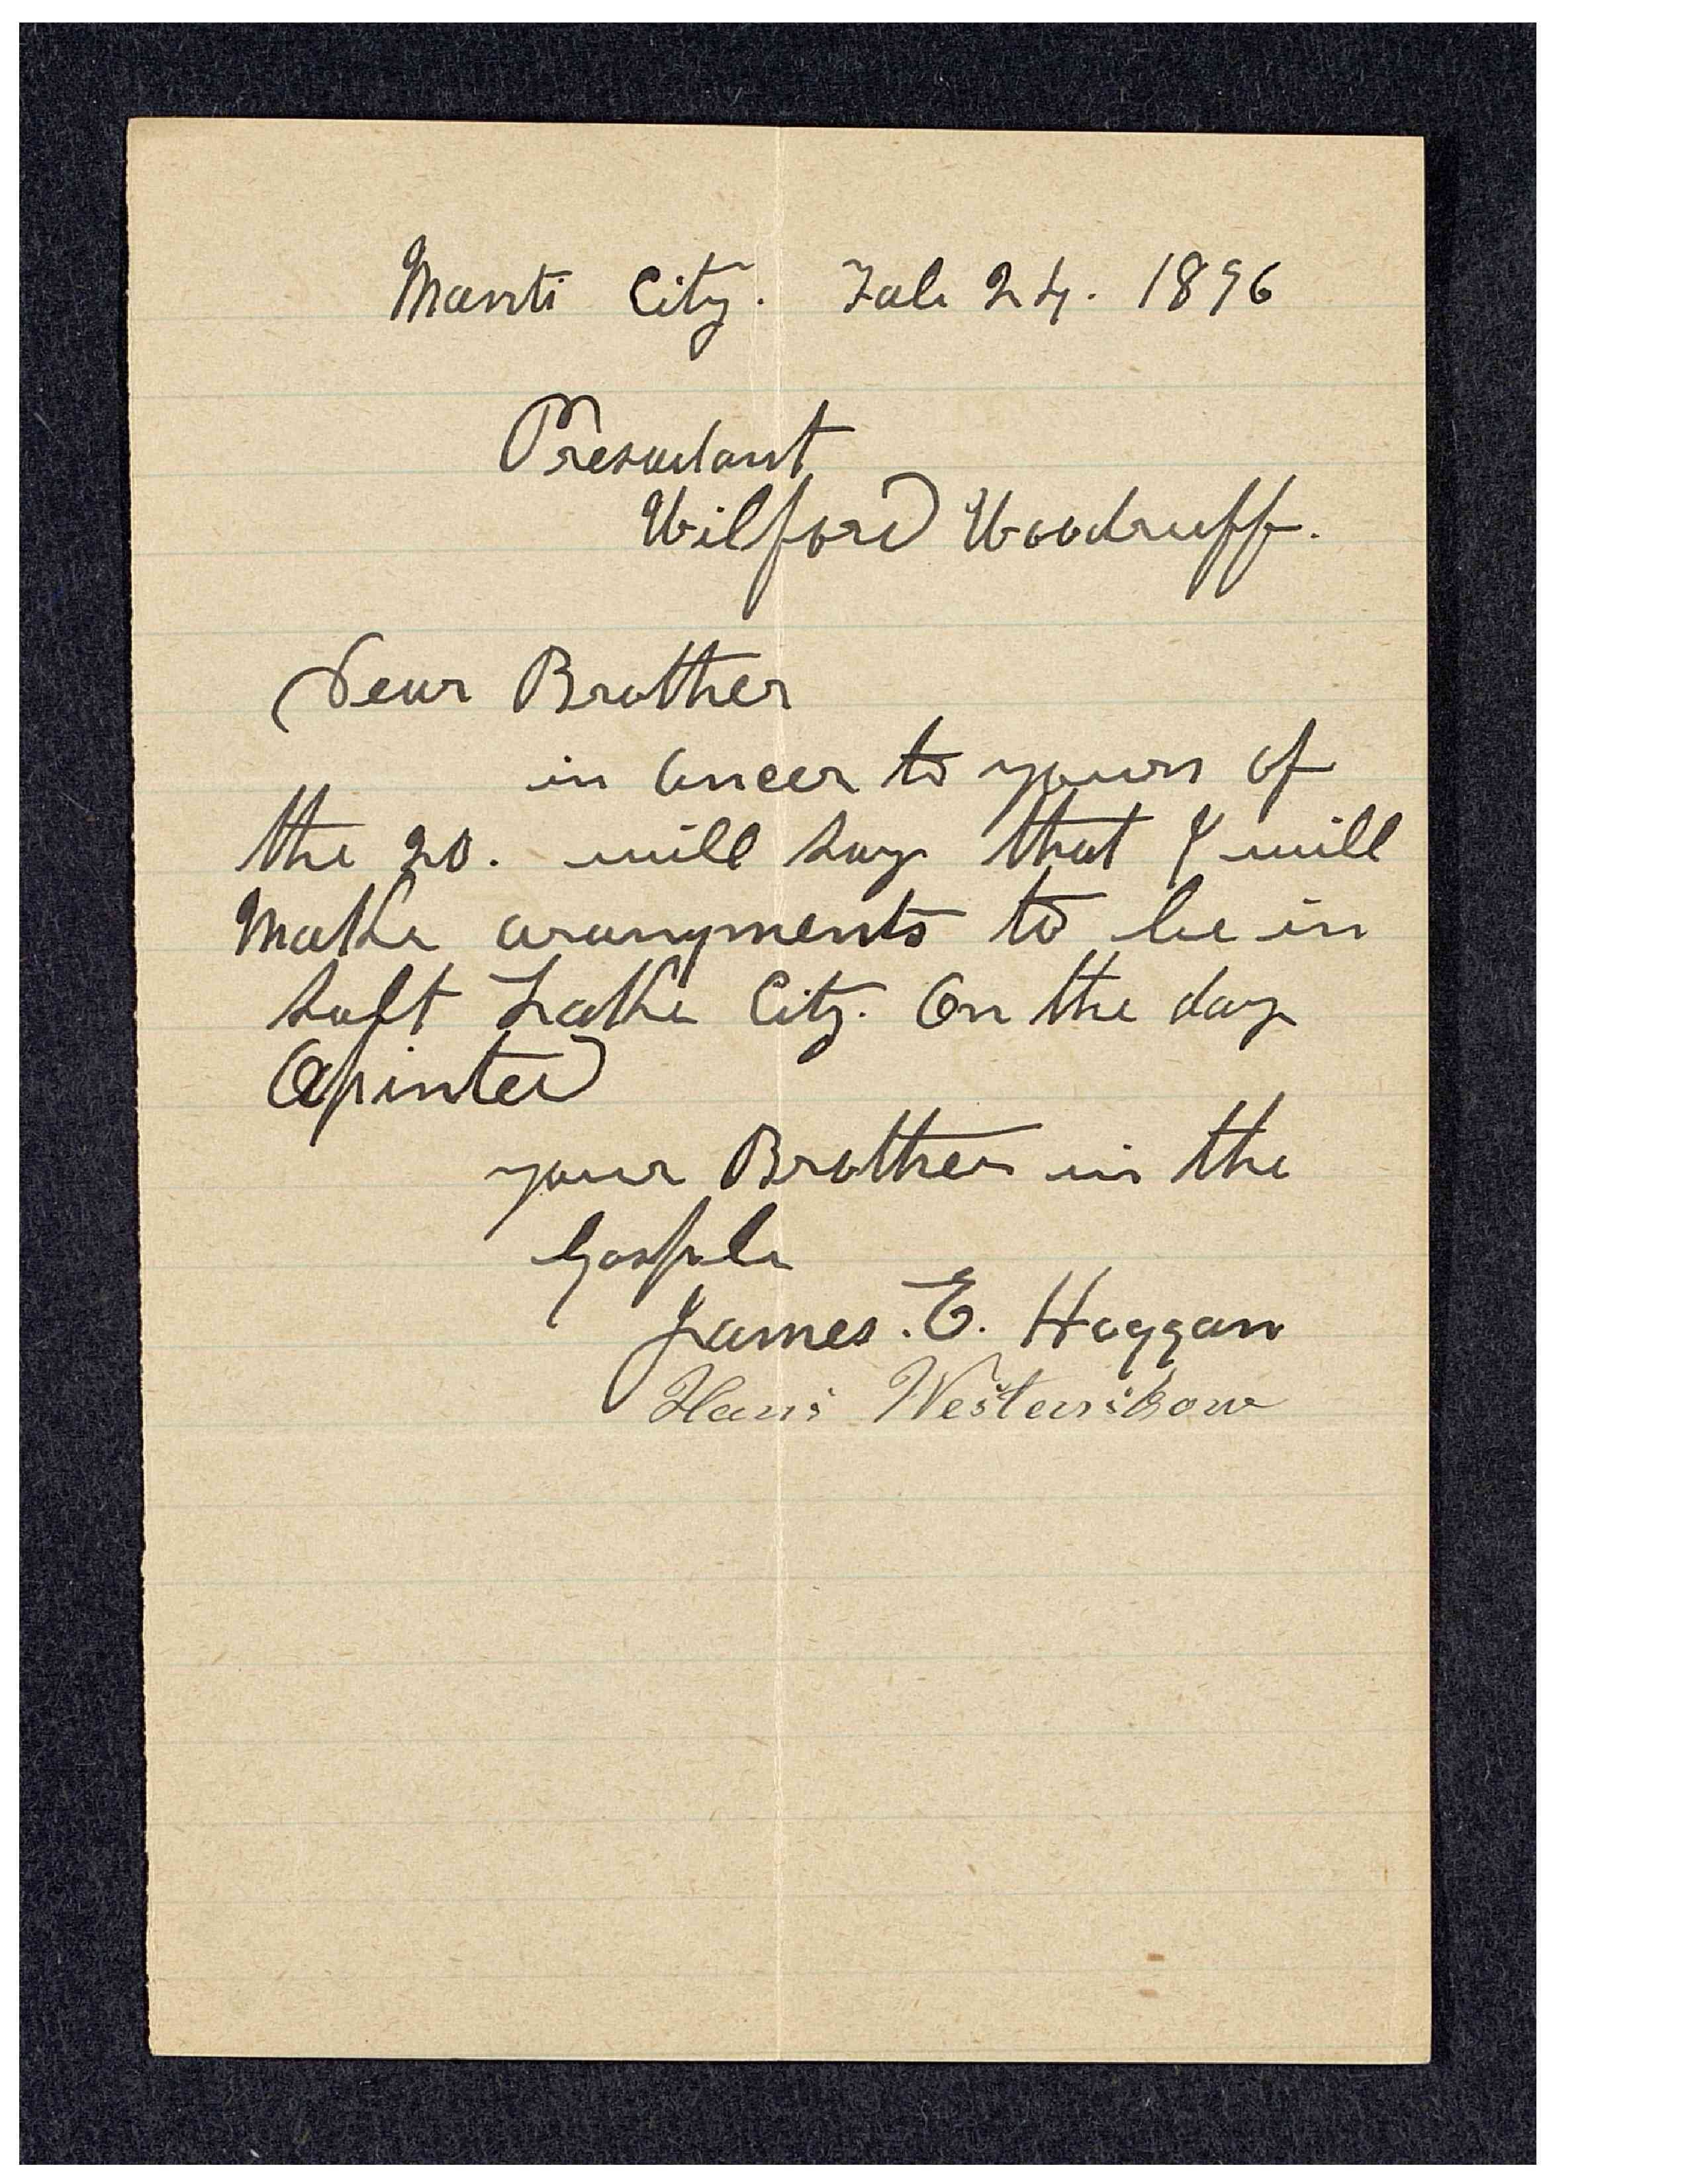 Manti City. Feb 24. 1896
Presadant
Wilford Woodruff.
Dear Brother
in ancer to yours of
the 20. will say that I will
Make arangments to be in
Salt Lake City. On the day
Apinted
your Brother in the
Gosple
James. E. Hoggan
Hans Westenskow